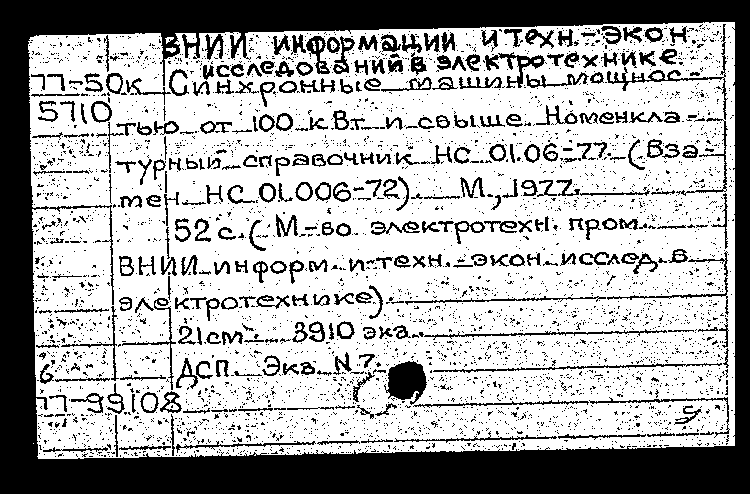 ВНИИ информации и техн.-экон
исследований в электротехнике.
77-50к Синхронные машины мощнос-
5710
тью от 100 кВт и свыше. Номенкла-
турный справочник НС 01.06-77 (Вза-
мен НС 01.006-72). М., 1977.
52 с. (М-во электротехн. пром.
ВНИИ информ. и техн.-экон. исслед. в
электротехнике).
21см. 3910 экз.
б ДСП. Экз. N 7.
77-99108